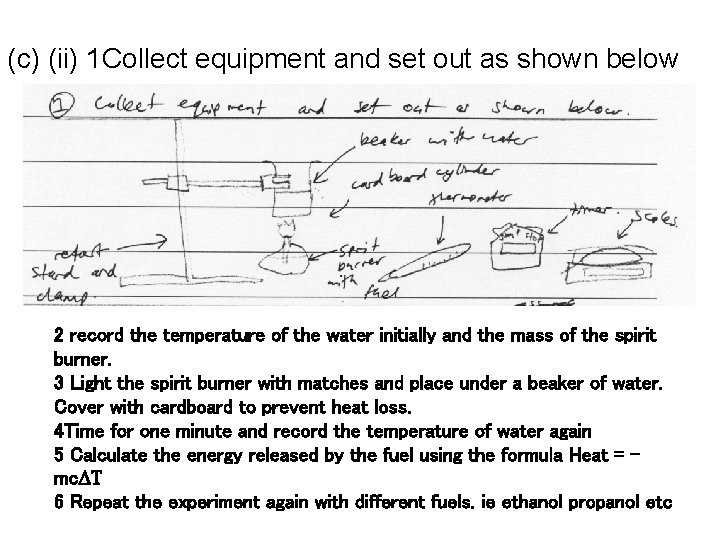 (c) (ii) 1Collect equipment and set out as shown below
① Collect equipment and set out as shown below.
beaker with water
cardboard cylinder
thermometer
timer.
scales.
retort
stand and
clamp.
spirit
burner
with
fuel
2 record the temperature of the water initially and the mass of the spirit
burner.
3 Light the spirit burner with matches and place under a beaker of water.
Cover with cardboard to prevent heat loss.
4Time for one minute and record the temperature of water again
5 Calculate the energy released by the fuel using the formula Heat = -
mcΔT
6 Repeat the experiment again with different fuels. ie ethanol propanol etc